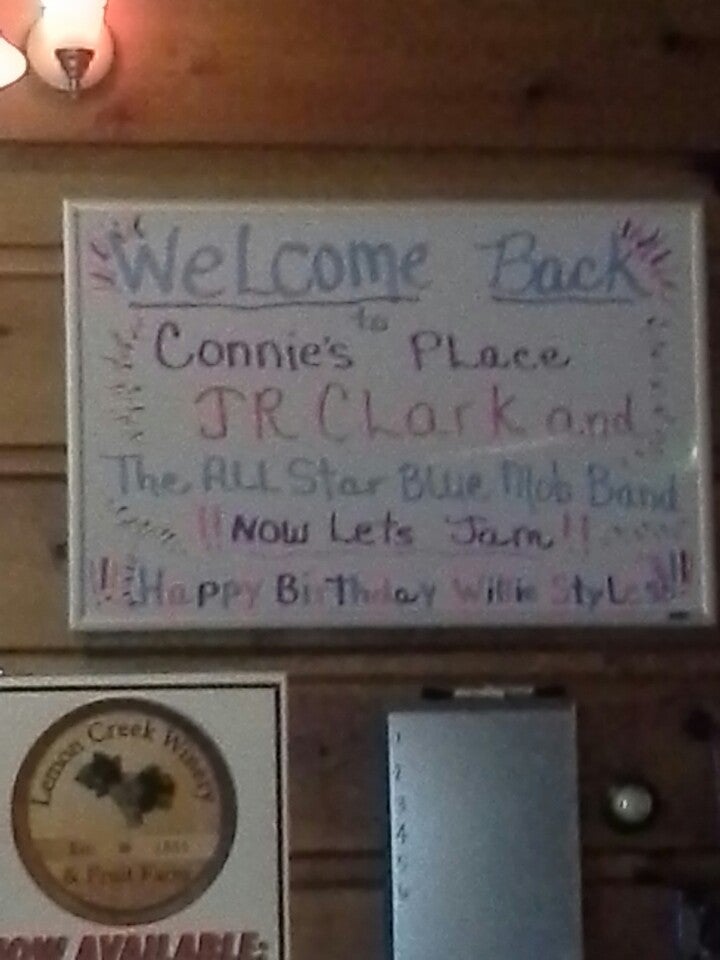 Welcome Back
to
Connie's Place
JR Clark and
The ALL Star Blue Mob Band
!! Now Lets Jam !!
!! Happy Birthday Willie Styles !!
Lemon Creek Winery
Est.
& Fruit Farm
NOW AVAILABLE:
1
2
3
4
5
6